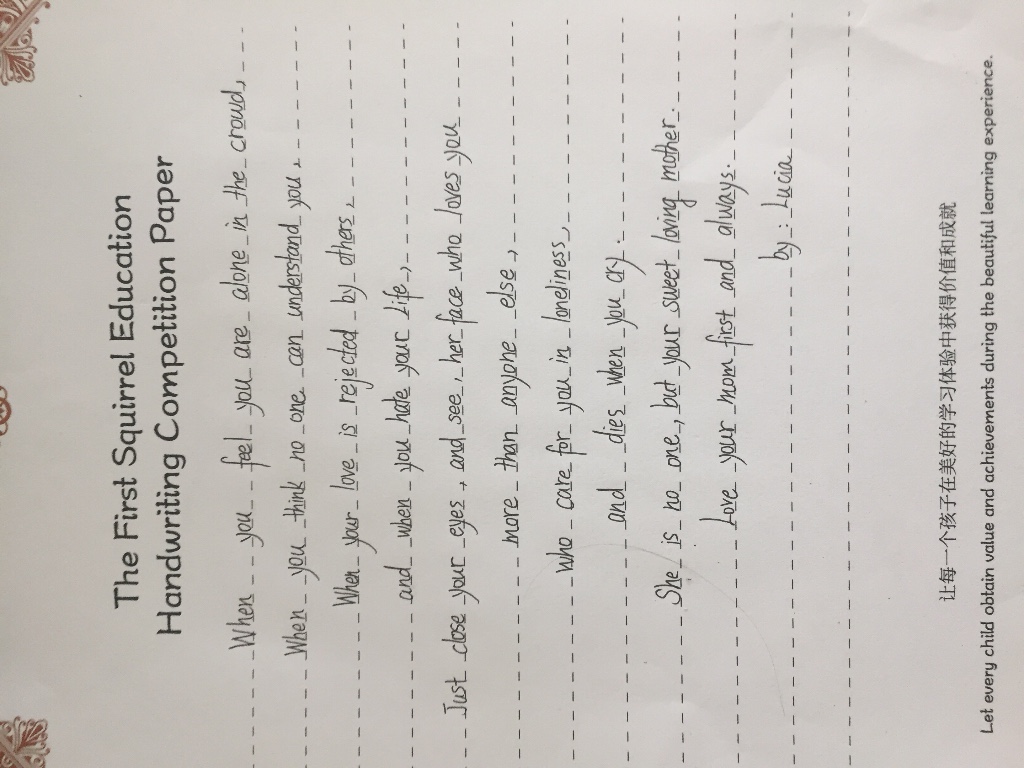 The First Squirrel Education
Handwriting Competition Paper
When you feel you are alone in the crowd,
When you think no one can understand you,
When your love is rejected by others,
and when you hate your life,
Just close your eyes, and see, her face who loves you
more than anyone else,
Who care for you in loneliness,
and dies when you cry.
She is no one, but your sweet loving mother.
Love your mom first and always.
by: Lucia
让每一个孩子在美好的学习体验中获得价值和成就
Let every child obtain value and achievements during the beautiful learning experience.